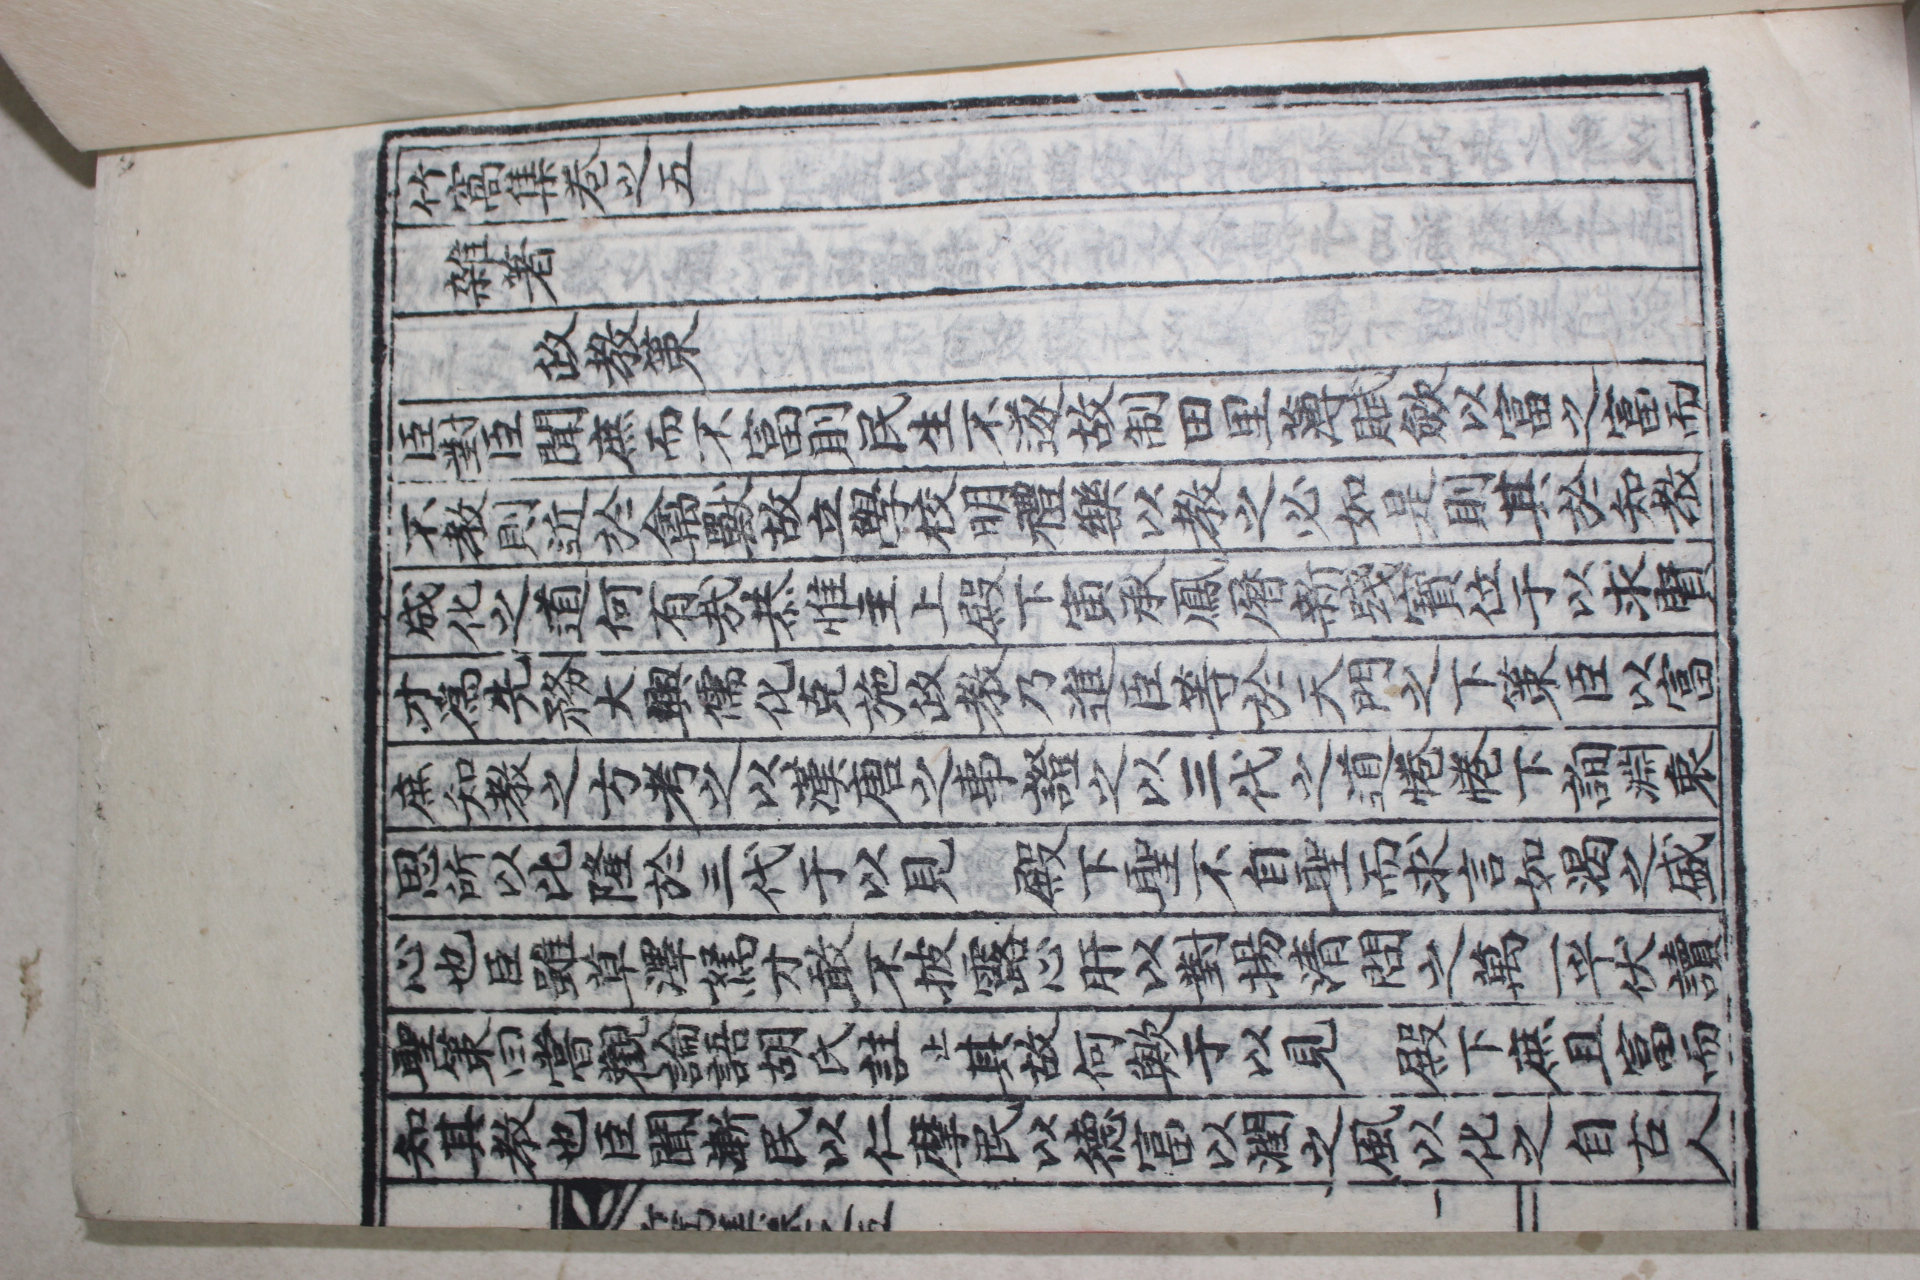 竹窩集卷之五
雜著
政教策
臣對臣聞庶而不富則民生不遂故制田里薄賦斂以富之富而
不教則近於禽獸故立學校明禮樂以教之必如是則其於知教
成化之道何有哉恭惟主上殿下寅承鳳曆新踐寶位于以求賢
才爲先務大興儒化克施政教乃進臣等於天門之下策臣以富
庶知教之方考之以漢唐之事證之以三代之道惓惓下詢淵衷
思所以比隆於三代于以見 殿下聖不自聖而求言如渴之盛
心也臣雖草澤駑才敢不披露心肝以對揚清問之萬一乎伏讀
聖策曰嘗觀論語胡氏註止其故何歟于以見 殿下庶且富而
知其教也臣聞漸民以仁摩民以德富以潤之風以化之自古人
竹窩集卷之五 一